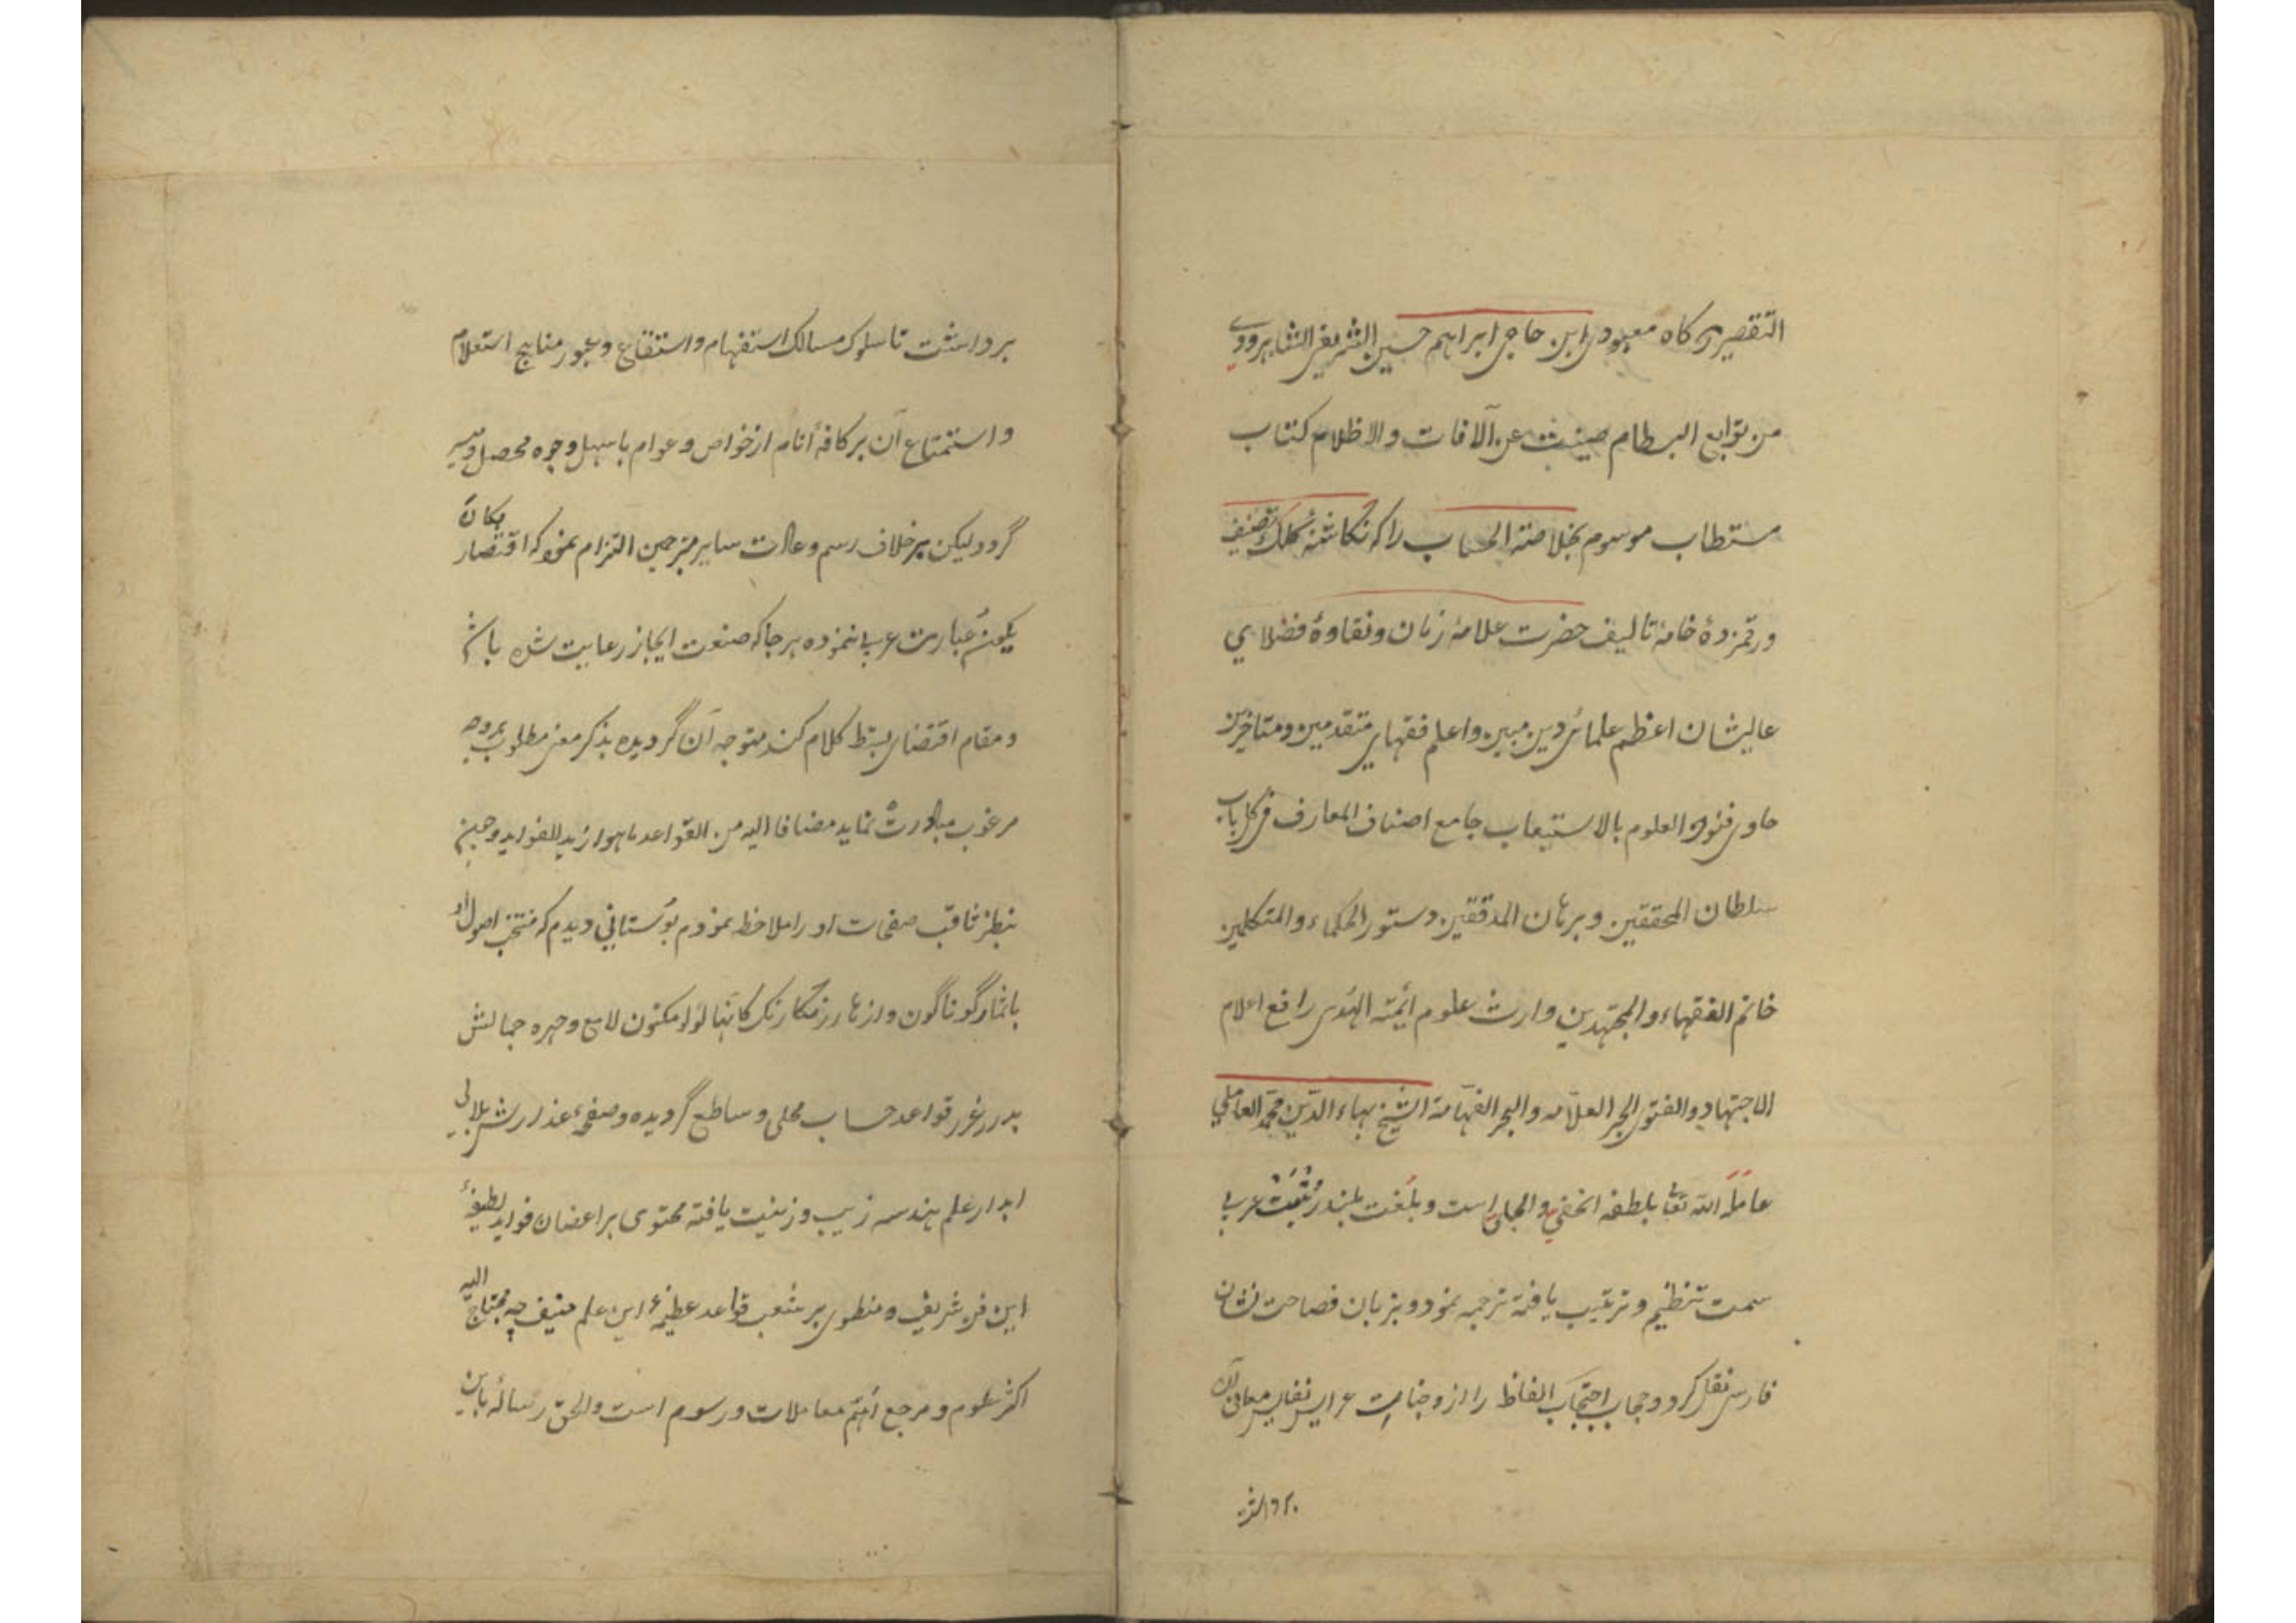 التقصیر کاه معبودی ابن حاجی ابراهیم حسین الشریف الشاهرودی
من توابع البسطام صینت عن الآفات والاظلام کتاب
مستطاب موسوم بخلاصة الحساب را که نکاشتهٔ کلک تصنیف
و رقمزدهٔ خامهٔ تالیف حضرت علامهٔ زمان و نقاوهٔ فضلای
عالیشان اعظم علمائ دین مبین و اعلم فقهای متقدمین و متاخرین
حاوی فنون العلوم بالاستیعاب جامع اصناف المعارف فی کل باب
سلطان المحققین و برهان المدققین دستور الحکماء و المتکلمین
خاتم الفقهاء و المجتهدین وارث علوم ائمة الهدی رافع اعلام
الاجتهاد و الفتوی الحبر العلامه و البحر الفهامة الشیخ بهاء الدین محمد العاملی
عامله الله تعالی بلطفه الخفی والجلی است و بلغت بلند رتبت عربی
سمت تنظیم و ترتیب یافته ترجمه نمود و بزبان فصاحت نشان
فارسی نقل کرد و حجاب احتجاب الفاظ را از وجنات عرایس نفایس معانی آن
برداشت
برداشت تا سلوک مسالک استفهام و استنفاع و عبور مناهج استعلام
و استمتاع آن بر کافهٔ انام از خواص و عوام باسهل وجوه محصل و میسر
گردد لیکن بر خلاف رسم و عادت سایر مترجمین التزام نمود که اقتصار
عبارت عربی ننموده هر جا که صنعت ایجاز رعایت شده باشد
و مقام اقتضای بسط کلام کند متوجه آن گردیده بذکر معنی مطلوب بروجه
مرغوب مبادرت نماید مضافا الیه من القواعد ما هو ازید للفواید و چون
بنظر ثاقب صفحات او را ملاحظه نمودم بوستانی دیدم که منتخب اصول او
باثمار گوناگون و ازهار رنکارنک کانها لؤلؤ مکنون لامع و چهره جمالش
بدرر غرر قواعد حساب محلی و ساطع گردیده و صفحهٔ عذارش بلالی
ابدار علم هندسه زیب و زینت یافته محتوی بر اغصان فواید لطیفهٔ
این فن شریف و منطوی بر شعب قواعد عظیمهٔ این علم منیف چه محتاج الیه
اکثر علوم و مرجع اهم معاملات و رسوم است و الحق رسالهٔ باین